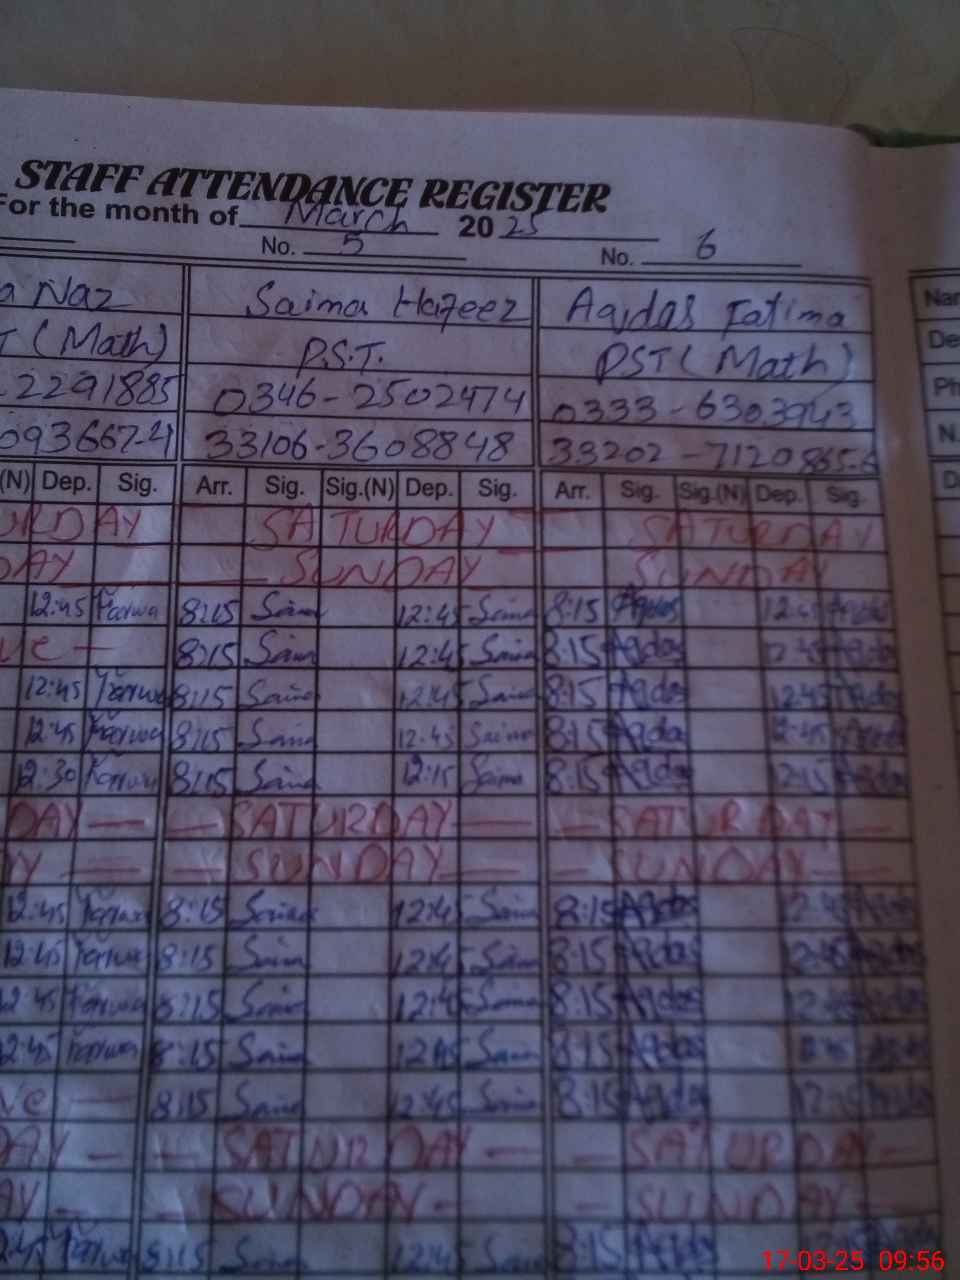 STAFF ATTENDANCE REGISTER
For the month of March 2025
No. 5 No. 6
a Naz Saima Hafeez Aqdas Fatima Nam
T (Math) P.S.T. PST (Math) De
2291885 0346-2502474 0333-6303943 Ph
093667-4 33106-3608848 33202-7120865-6 N.
(N) Dep. Sig. Arr. Sig. Sig.(N) Dep. Sig. Arr. Sig. Sig.(N) Dep. Sig. D
URDAY — SATURDAY — SATURDAY
DAY — SUNDAY SUNDAY
12:45 8:15 Saima 12:45 Saima 8:15 Aqdas 12:45 Aqdas
ve — 8:15 Saima 12:45 Saima 8:15 Aqdas 12:45 Aqdas
12:45 8:15 Saima 12:45 Saima 8:15 Aqdas 12:45 Aqdas
12:45 8:15 Saima 12:45 Saima 8:15 Aqdas 12:45 Aqdas
12:30 8:15 Saima 12:15 Saima 8:15 Aqdas 12:15 Aqdas
DAY — — SATURDAY — — SATURDAY —
Y — — SUNDAY — — SUNDAY —
12:45 8:15 Saima 12:45 Saima 8:15 Aqdas 12:45 Aqdas
12:45 8:15 Saima 12:45 Saima 8:15 Aqdas 12:45 Aqdas
12:45 8:15 Saima 12:45 Saima 8:15 Aqdas 12:45 Aqdas
12:45 8:15 Saima 12:45 Saima 8:15 Aqdas 12:45 Aqdas
ve — 8:15 Saima 12:45 Saima 8:15 Aqdas 12:45 Aqdas
DAY — — SATURDAY — — SATURDAY —
AY — — SUNDAY — — SUNDAY —
12:45 8:15 Saima 12:45 Saima 8:15 Aqdas
17-03-25 09:56